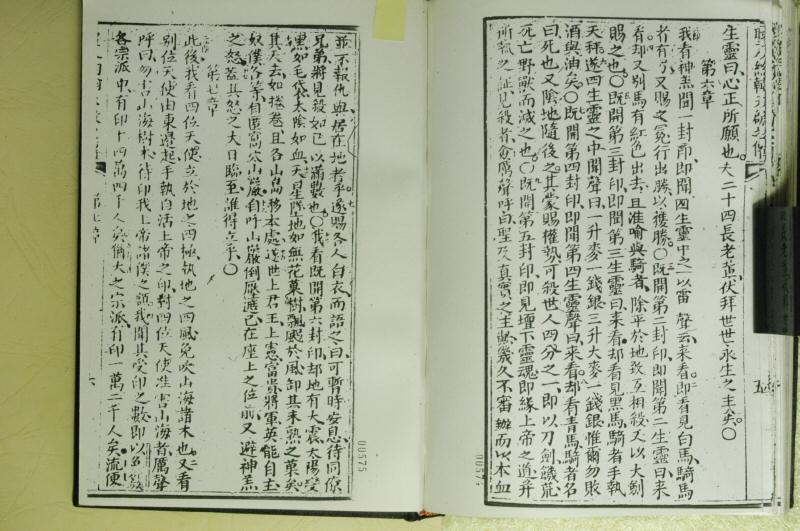 生靈曰心正所願也大二十四長老黨伏拜世世永生之主矣〇
第六章
我看神羔開一封印即聞四生靈中之一以雷聲云來看即看見白馬騎馬
者有弓又賜之冕行出勝以獲勝〇既開第二封印即聞第二生靈曰來
看却又別馬有紅色出去且准喻與騎者除平於地致互相殺又以大劍
賜之也〇既開第三封印即聞第三生靈曰來看却看見黑馬騎者手執
天秤遂四生靈之中聞聲曰一升麥一錢銀三升大麥一錢銀惟爾勿敗
酒與油矣〇既開第四封印即聞第四生靈聲曰來看却看青馬騎者名
曰死也又陰地隨後之其蒙賜權勢可殺世人四分之一即以刀劍饑荒
死亡野獸而滅之也〇既開第五封印即見壇下靈魂即緣上帝之道並
所執之証見殺者愈厲聲呼曰聖及真實之主歟幾久不審辦而以本血
並不報仇與居在地者乎遂賜各人白衣而語之曰可暫時安息待同僕
兄弟將見殺如已以滿數也〇我看既開第六封印却地有大震太陽變
黑如毛袋太陰如血天星墜地如無花菓樹飄颺於風卸其未熟之菓矣
其天去如捲卷且各山島移本處遂世上君王上憲富貴將軍英能自主
奴僕各等自匿窩穴山巖自吁山巖倒壓遮己在座上之位前又避神羔
之怒蓋其怒之大日臨至誰得立乎〇
第七章
此後我看四位天使立於地之四極執地之四風免吹山海諸木也又看
別位天使由東邊起手執自活上帝之印對四位天使准害山海者厲聲
呼曰勿害山海樹木待印我上帝諸僕之額我聞其受印之數即以色列
各宗派中有印十四萬四千人矣猶大之宗派有印一萬二千人矣流便
第七章
六
00575